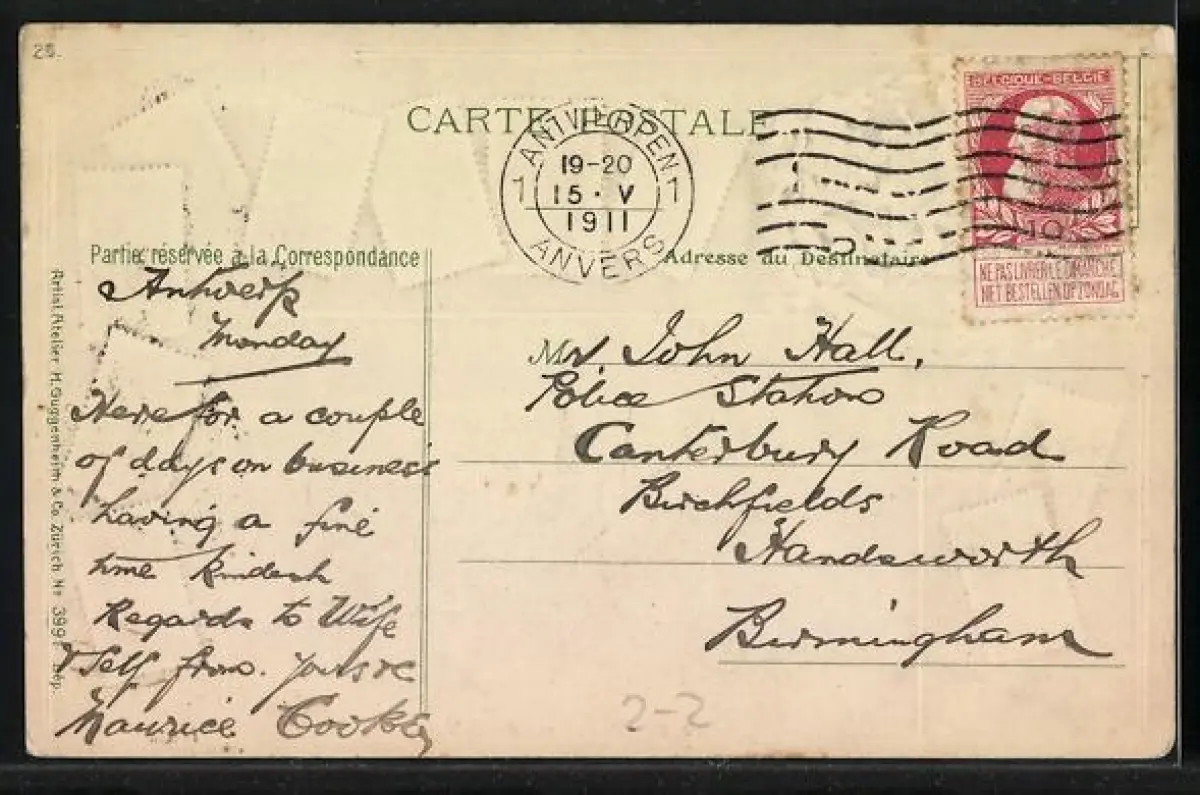 25.
CARTE POSTALE
ANTWERPEN
1 1
19-20
15 · V
1911
ANVERS
BELGIQUE-BELGIE
NE PAS LIVRER LE DIMANCHE
NIET BESTELLEN OP ZONDAG
Partie réservée à la Correspondance
Antwerp
Monday
Here for a couple
of days on business
having a fine
time kindest
Regards to Wife
& Self from. yours
Maurice Cooke
Adresse du Destinataire
Mr. John Hall,
Police Station
Canterbury Road
Birchfields
Handsworth
Birmingham
2-2
Artist Atelier H. Guggenheim & Co. Zürich No 399 Dép.